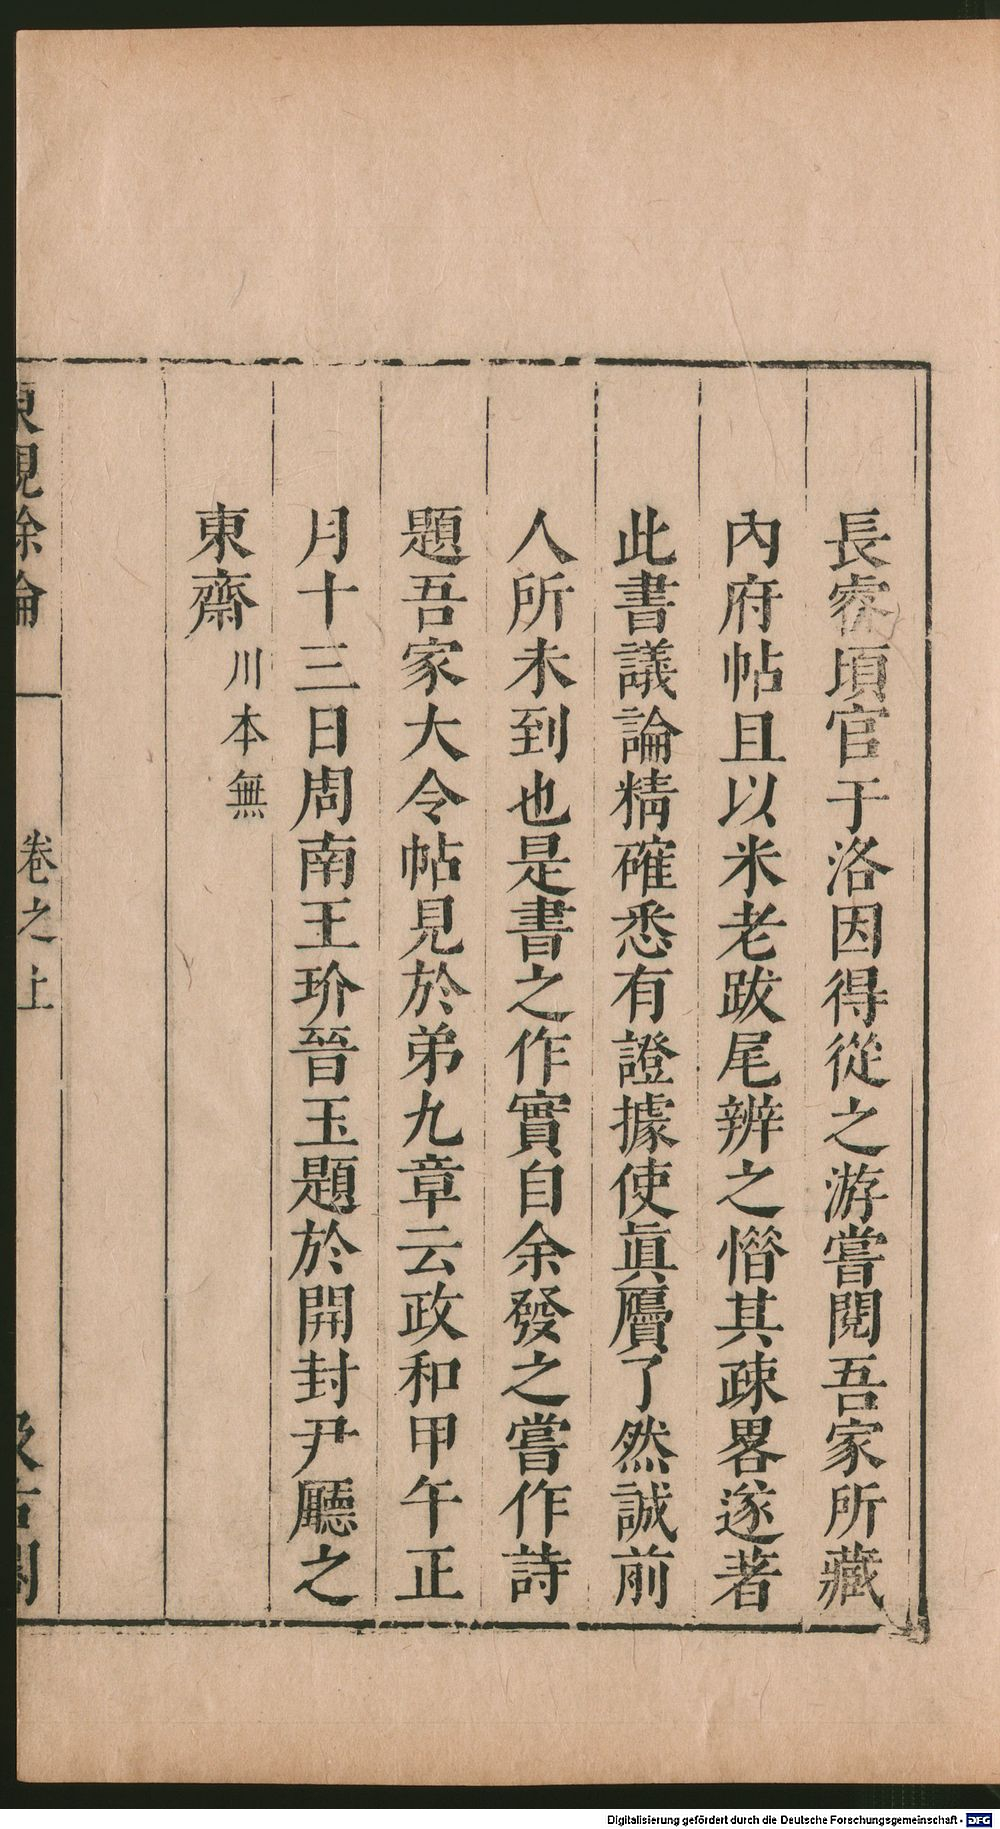 長睿頃官于洛因得從之游嘗閱吾家所藏
內府帖且以米老跋尾辨之㦧其疎畧遂著
此書議論精確悉有證據使眞贗了然誠前
人所未到也是書之作實自余發之嘗作詩
題吾家大令帖見於弟九章云政和甲午正
月十三日周南王玠晉玉題於開封尹廳之
東齋 川本無
東觀餘論 卷之上 汲古閣
Digitalisierung gefördert durch die Deutsche Forschungsgemeinschaft - DFG